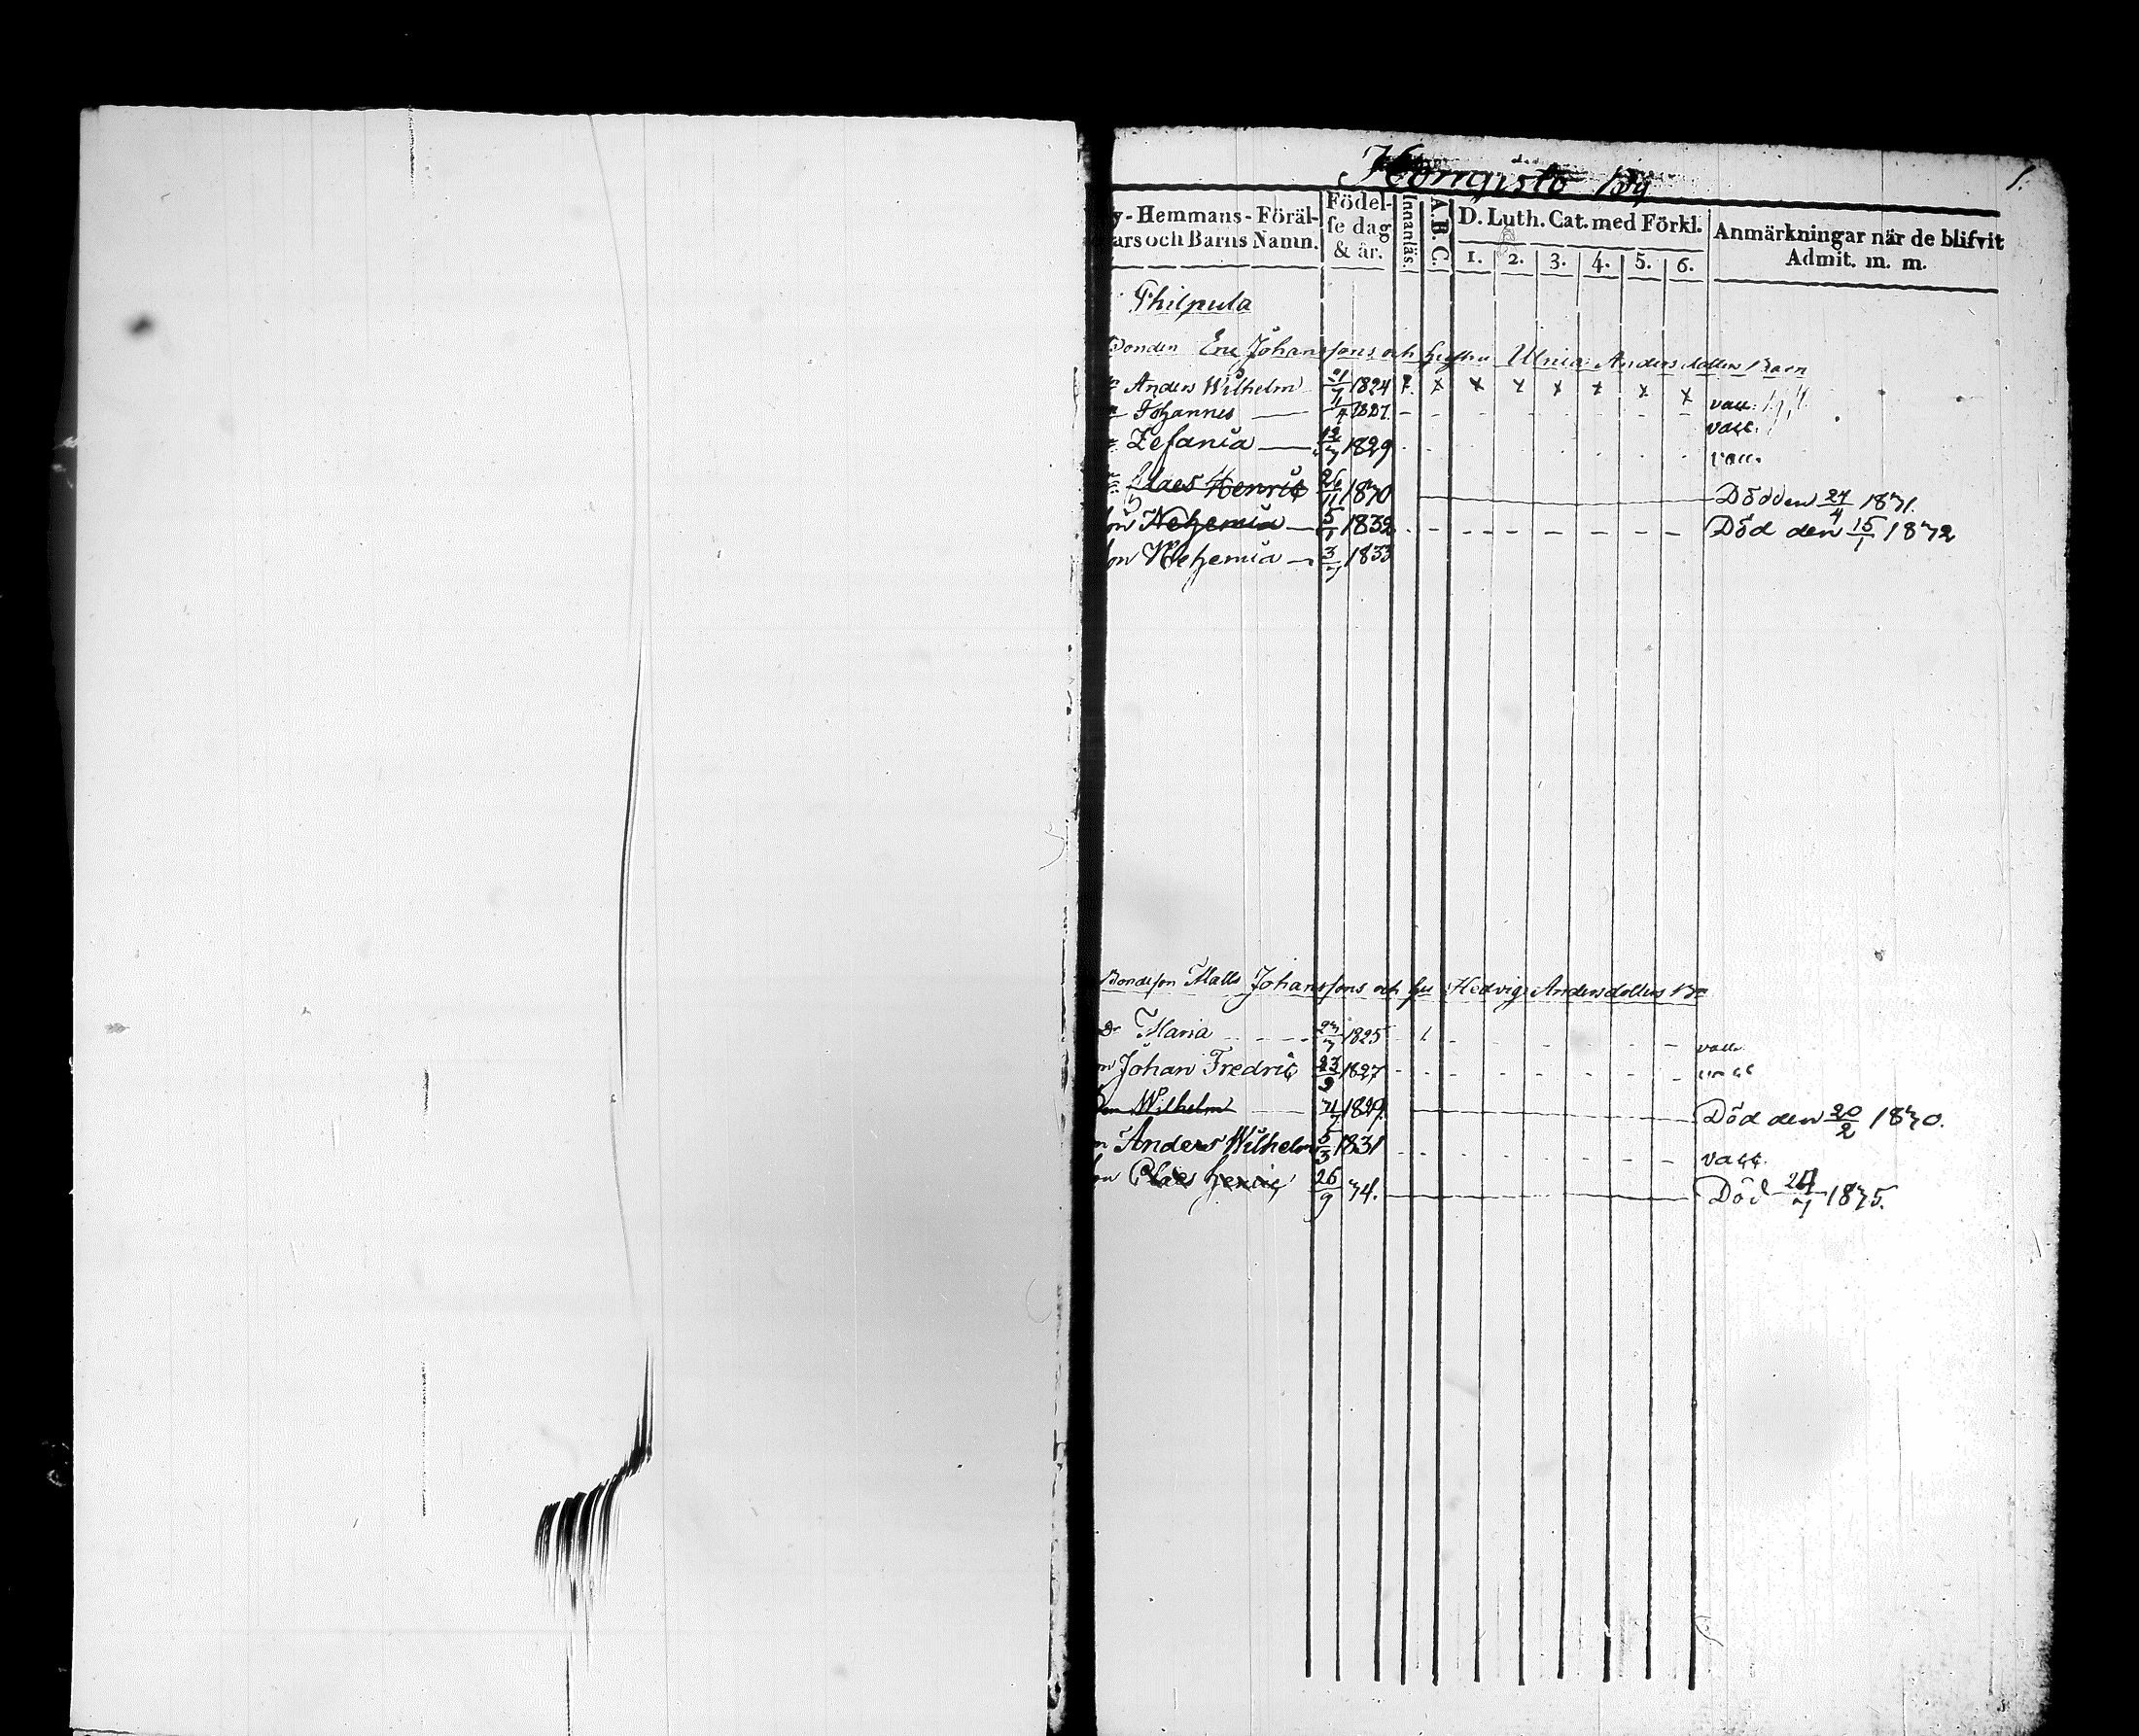 Hongisto By
1.
y-Hemmans-Föräl-
ars och Barns Namn.
Födel-
se dag
& år.
Innanläs.
A.B.C.
D. Luth. Cat. med Förkl.
1. 2. 3. 4. 5. 6.
Anmärkningar när de blifvit
Admit. m. m.
Philpula
Bonden Eric Johanssons och hustru Anders dotters Barn
Anders Wilhelm 1824 vacc.
Johannes vacc.
Zefania 12/7 1829 vacc.
Claes Henric 26/11 1830 Död den 27/4 1831.
son Nehemia 5/1 1832 Död den 15/1 1832
son Nehemia 3/7 1833
Bondeson Matts Johanssons och hu Hedvig Andersdotters Bn
Dr Maria 27/7 1825 vacc.
Johan Fredric 23/9 1827 vacc
Son Wilhelm 1829. Död den 20/2 1830.
Anders Wilhelm 5/3 1831 vacc.
son Claes Henric 26/9 34. Död 1835.